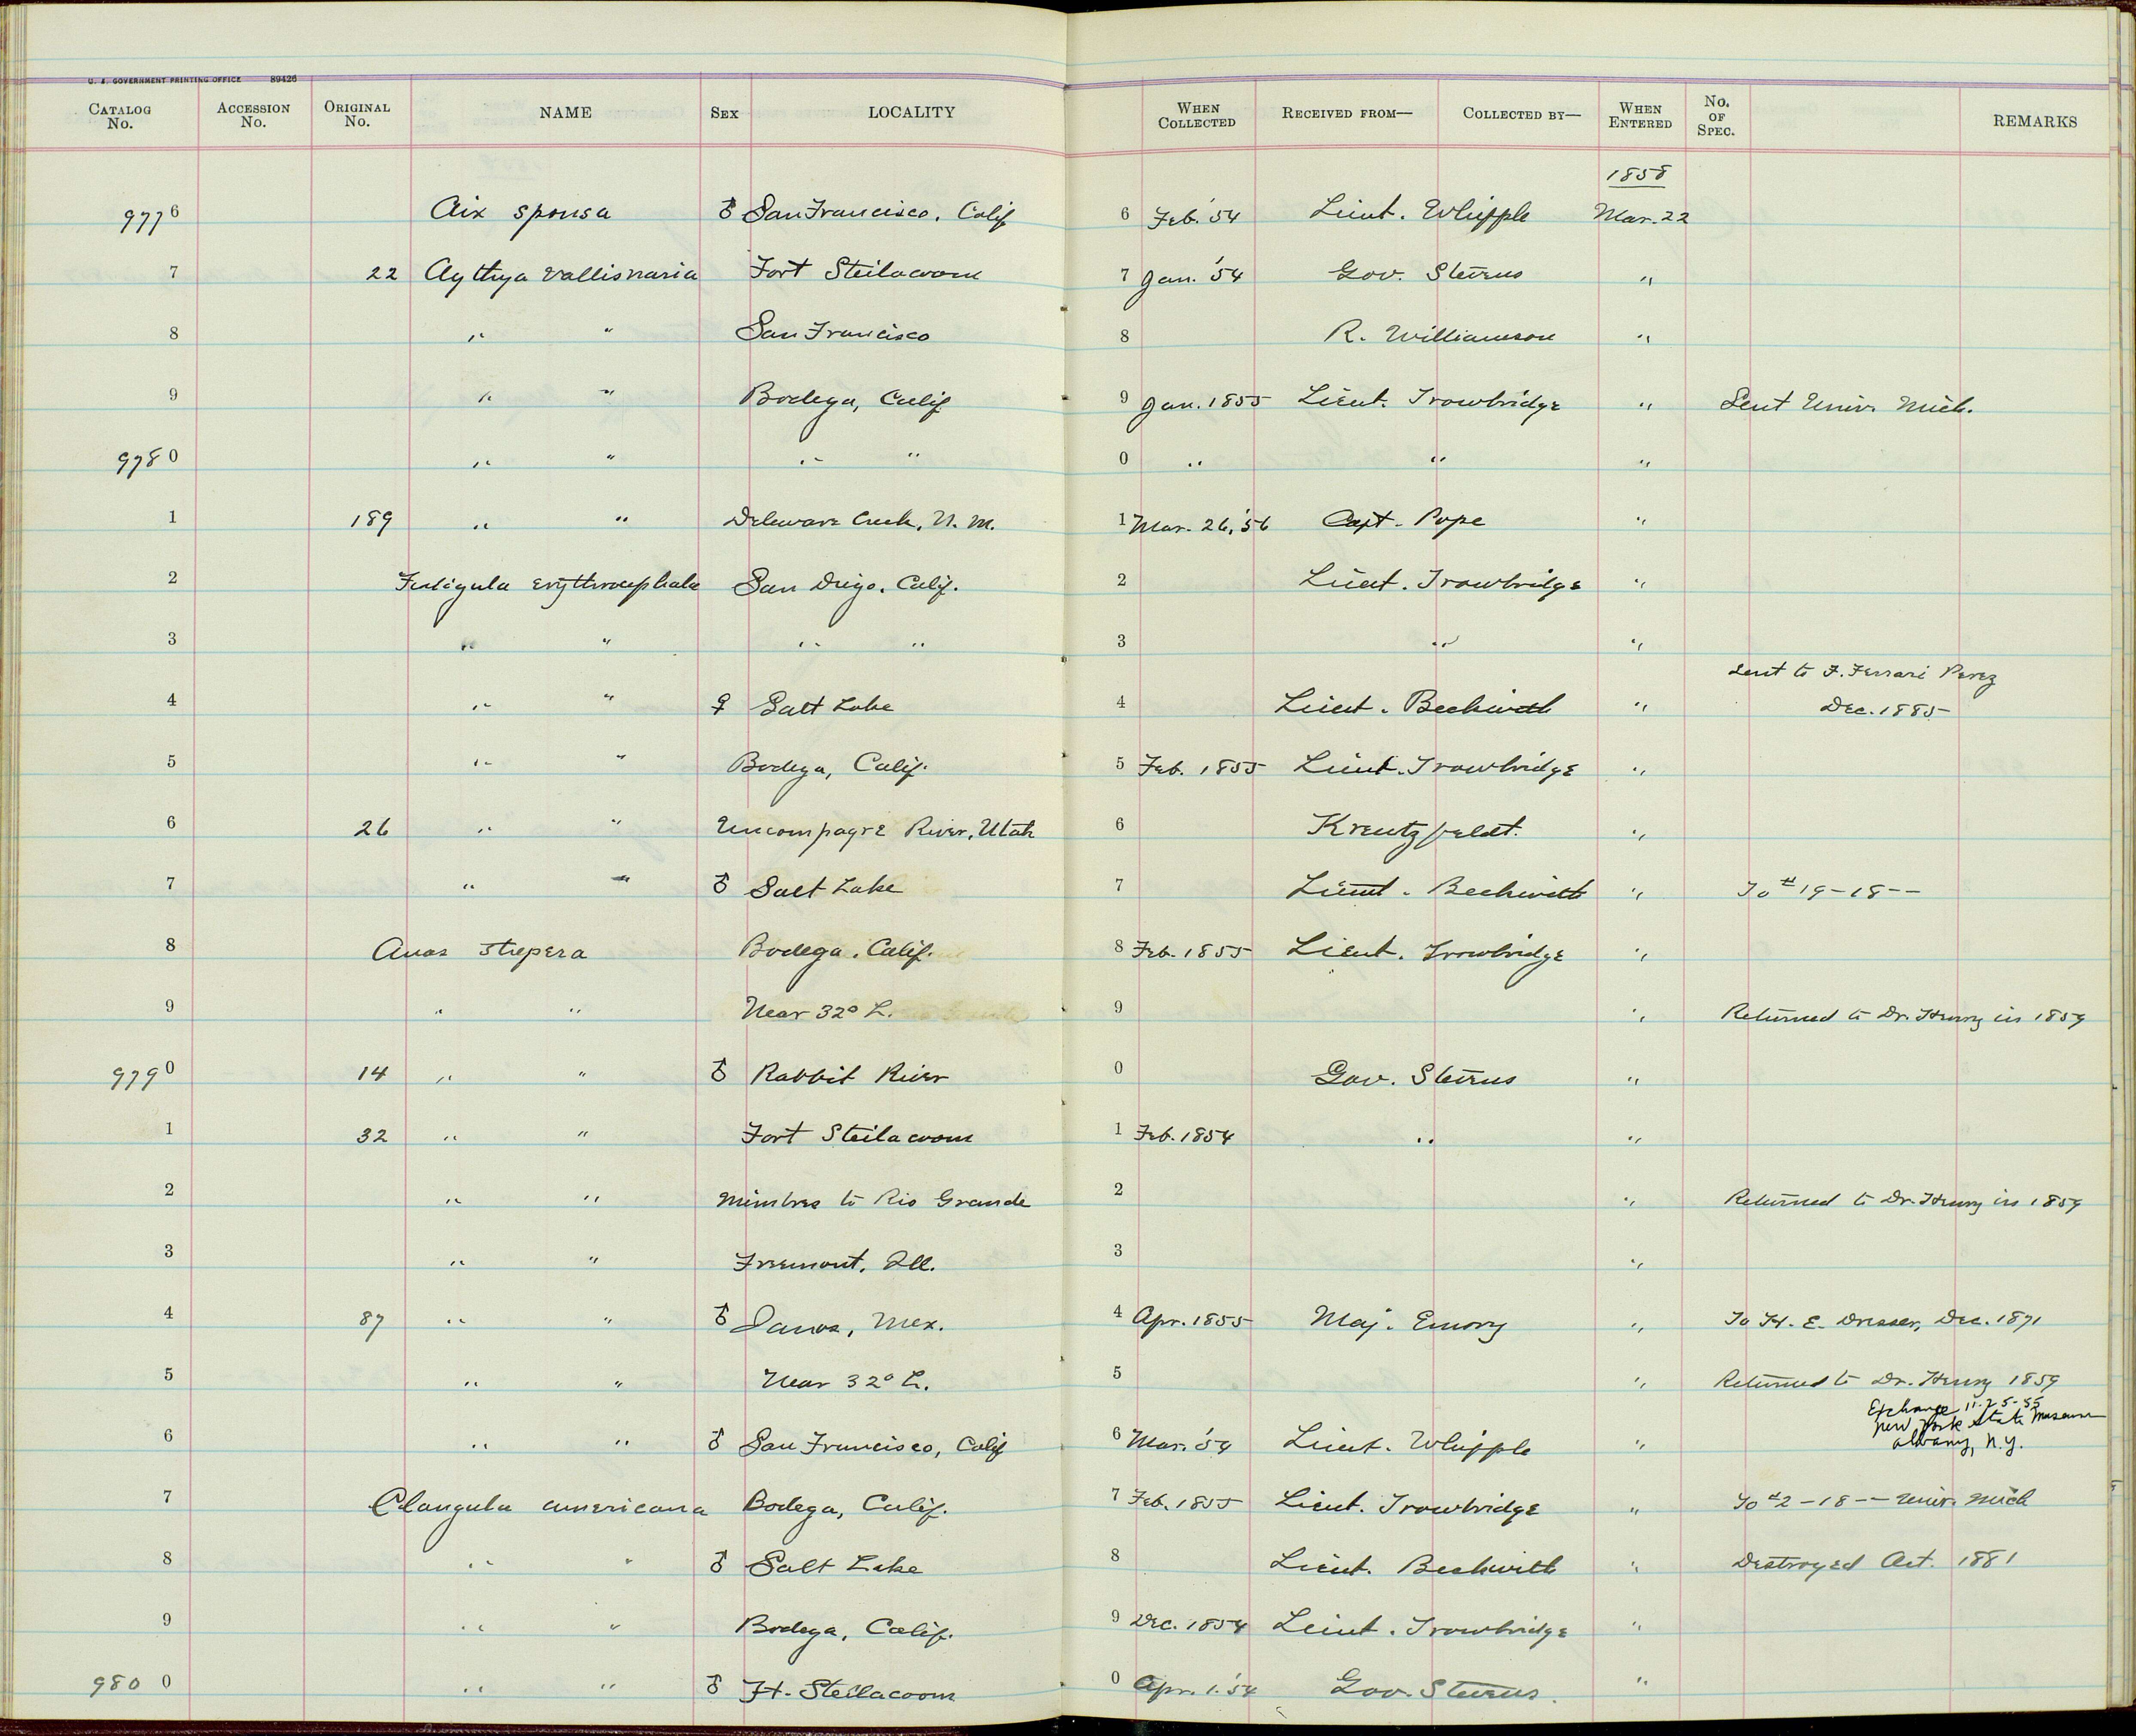 U. S. GOVERNMENT PRINTING OFFICE 89426
CATALOG No. ACCESSION No. ORIGINAL No. NAME SEX LOCALITY WHEN COLLECTED RECEIVED FROM— COLLECTED BY— WHEN ENTERED No. OF SPEC. REMARKS
1858
9776 Aix sponsa ♂ San Francisco, Calif 6 Feb. '54 Lieut. Whipple Mar. 22
7 22 Aythya vallisnaria Fort Steilacoom 7 Jan. '54 Gov. Stevens "
8 " " San Francisco 8 R. Williamson "
9 " " Bodega, Calif 9 Jan. 1855 Lieut. Trowbridge " Sent Univ. Mich.
9780 " " " " 0 " " "
1 189 " " Deleware Creek, N. M. 1 Mar. 26, '56 Capt. Pope "
2 Fuligula erythrocephala San Diego, Calif. 2 Lieut. Trowbridge "
3 " " " " 3 " "
Sent to F. Ferrari Perez
4 " " ♀ Salt Lake 4 Lieut. Beckwith " Dec. 1885
5 " " Bodega, Calif. 5 Feb. 1855 Lieut. Trowbridge "
6 26 " " Uncompagre River, Utah 6 Kreutzfeldt. "
7 " " ♂ Salt Lake 7 Lieut. Beckwith " To # 19-18--
8 Anas strepera Bodega, Calif. 8 Feb. 1855 Lieut. Trowbridge "
9 " " Near 32° L. 9 " Returned to Dr. Henry in 1859
9790 14 " " ♂ Rabbit River 0 Gov. Stevens "
1 32 " " Fort Steilacoom 1 Feb. 1854 " "
2 " " Mimbres to Rio Grande 2 " Returned to Dr. Henry in 1859
3 " " Freemont, Ill. 3 "
4 87 " " ♂ Janos, Mex. 4 Apr. 1855 Maj. Emory " To H. E. Dresser, Dec. 1871
5 " " Near 32° L. 5 " Returned to Dr. Henry 1859
Exchange 11-25-55
New York State Museum
6 " " ♂ San Francisco, Calif 6 Mar. '54 Lieut. Whipple " Albany, N.Y.
7 Clangula americana Bodega, Calif. 7 Feb. 1855 Lieut. Trowbridge " To # 2-18-- Univ. Mich
8 " " ♂ Salt Lake 8 Lieut. Beckwith " Destroyed Oct. 1881
9 " " Bodega, Calif. 9 Dec. 1854 Lieut. Trowbridge "
9800 " " ♂ Ft. Steilacoom 0 Apr. 1. '54 Gov. Stevens. "